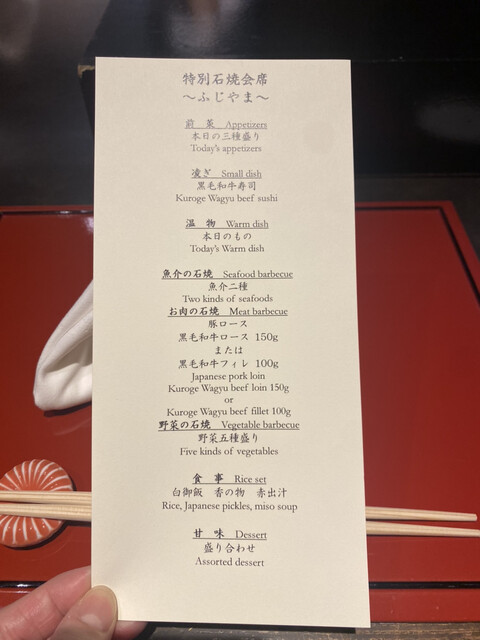 特別石焼会席
～ふじやま～
前　菜　Appetizers
本日の三種盛り
Today's appetizers
凌ぎ　Small dish
黒毛和牛寿司
Kuroge Wagyu beef sushi
温　物　Warm dish
本日のもの
Today's Warm dish
魚介の石焼　Seafood barbecue
魚介二種
Two kinds of seafoods
お肉の石焼　Meat barbecue
豚ロース
黒毛和牛ロース 150g
または
黒毛和牛フィレ 100g
Japanese pork loin
Kuroge Wagyu beef loin 150g
or
Kuroge Wagyu beef fillet 100g
野菜の石焼　Vegetable barbecue
野菜五種盛り
Five kinds of vegetables
食　事　Rice set
白御飯　香の物　赤出汁
Rice, Japanese pickles, miso soup
甘　味　Dessert
盛り合わせ
Assorted dessert